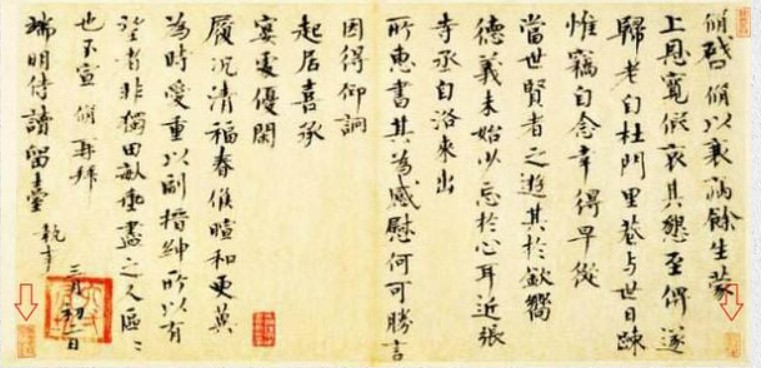 脩啓脩以衰病餘生蒙
上恩寬假哀其懇至俾遂
歸老自杜門里巷与世日踈
惟竊自念幸得早從
當世賢者之遊其於欽嚮
德義未始少忘於心耳近張
寺丞自洛來出
所惠書其為感慰何可勝言
因得仰詗
起居喜承
宴處優閑
履況清福春候暄和更冀
為時愛重以副搢紳所以有
望者非獨田畝垂盡之人區〻
也不宣脩再拜
端明侍讀留臺執事
三月初二日